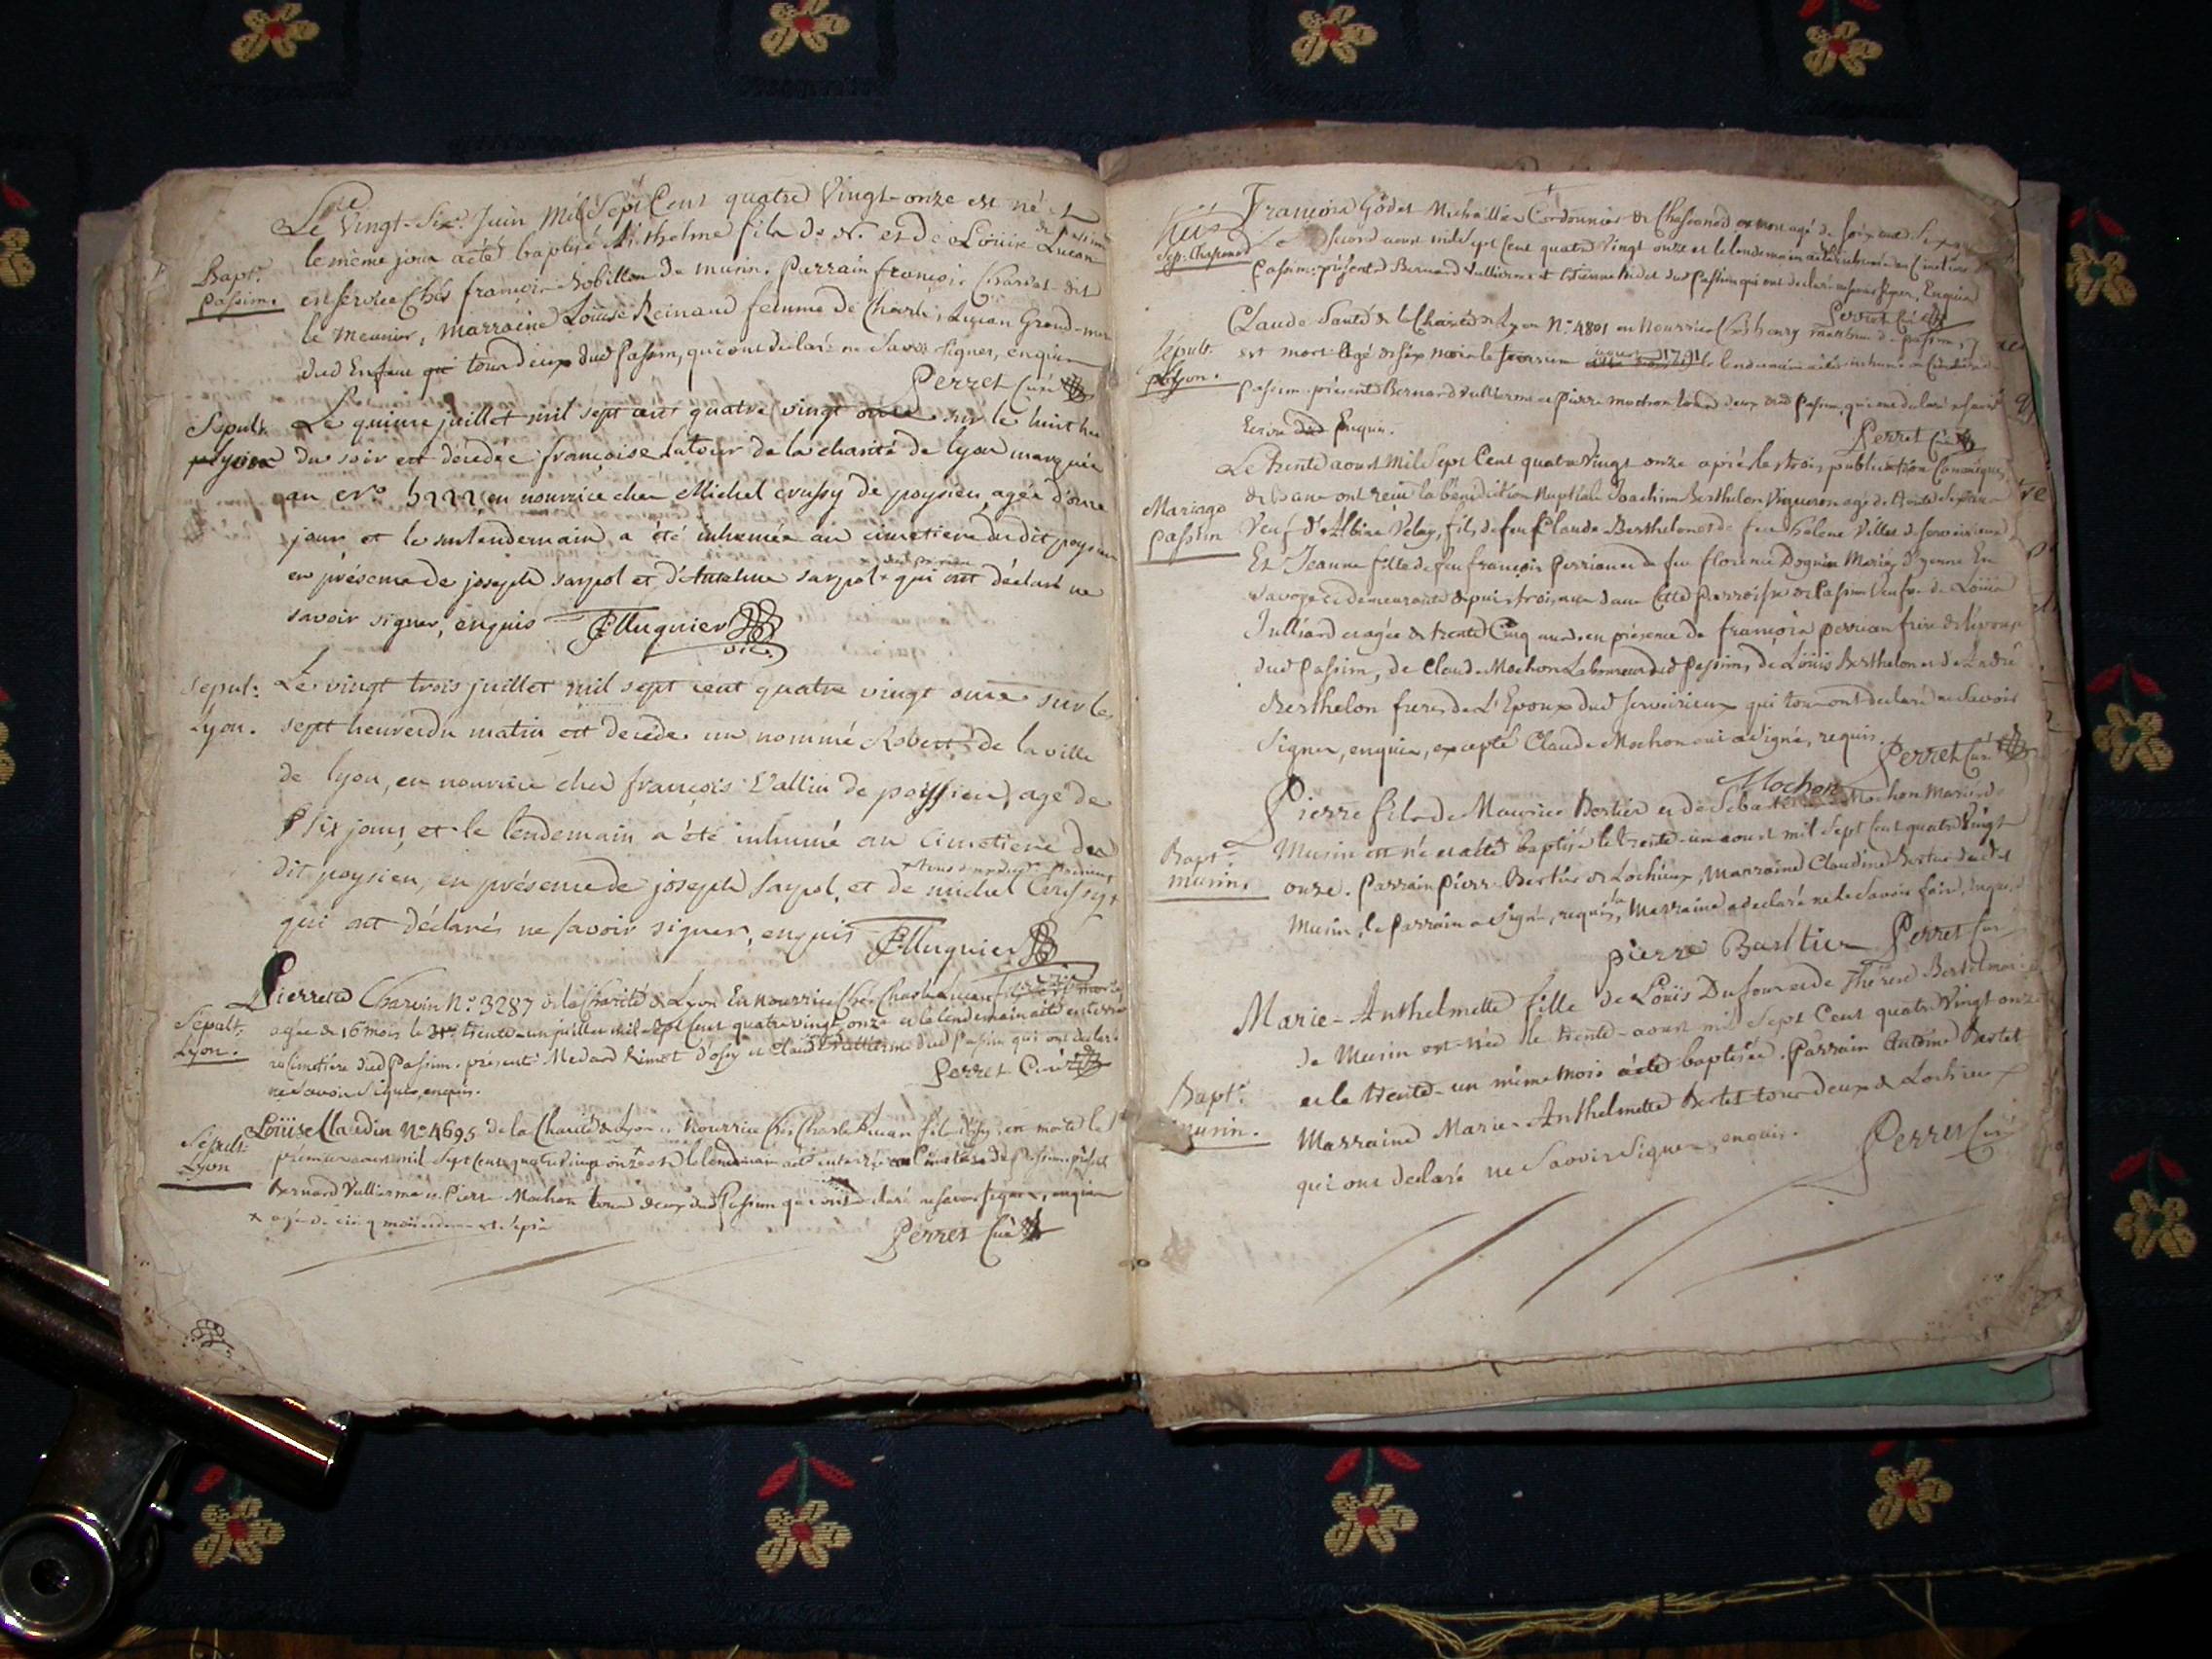 Le vingt-six Juin mil Sept Cent quatre Vingt-onze est né et
le même jour a été baptisé Anthelme fils de N. et de Louise Lucan
Bapt.
passim.
en service chés françois Robillon de musin. Parrain françois Chardat dit
le meunier, marraine Louise Reinaud femme de Charles Lucan Grand-mere
dud Enfant qui tous deux dud Passim, qui ont déclaré ne Savoir signer, enquis
Perret Curé
Sepult.
Le quinze juillet mil sept cent quatre vingt onze sur le huit heu
du soir est décédée françoise latour de la charité de lyon marquée
au Nro 5222 en nourrice chez Michel crussy de poysieu, agée d'onze
jours et le surlendemain a été inhumée au cimetiere dudit poysieu
en présence de joseph sarpol et d'Antelme sarpol qui ont déclaré ne
savoir signer, enquis Muguier
vic.
Sepul:
Lyon.
Le vingt trois juillet mil sept cent quatre vingt onze sur les
sept heures du matin est décédé un nommé Robert de la ville
de lyon, en nourrice chez françois Vallin de poysieu, agé de
six jours et le lendemain a été inhumé au cimetiere du
dit poysieu, en présence de joseph sarpol, et de michel Crussy
qui ont déclarés ne savoir signer, enquis Muguier
Pierrette Charvin No. 3287 de la Charité de Lyon En nourrice chés Charle Lucan
Sepult:
Lyon.
agée de 16 mois le trente-un juillet mil Sept Cent quatre vingt onze et le lendemain a été enterrée
au Cimetière dud Passim. présents Medard Rimet d'ossy et Claude Vullierme dud Passim qui ont déclaré
ne Savoir Signer, enquis.
Perret Curé
Louise Claudin No. 4695 de la Charité de Lyon en Nourrice chés Charle Lucan
Sépult:
Lyon
premier aoust mil Sept Cent quatre vingt onze et le lendemain a été enterrée au Cimetière de Passim. présents
Bernard Vullierme et Pierre Mochon tous deux dud Passim qui ont déclaré ne Savoir Signer, enquis
x agée de cinq mois
Perret Curé
François Godet Cordonnier de Chassonod est mort agé de soixante Six
Sep. Chassonod
Le second aoust mil Sept Cent quatre vingt onze et le lendemain a été inhumé au Cimetière de
Passim: présents Bernard Vullierme et Etienne dud Passim qui ont déclaré ne Savoir Signer, Enquis
Perret Curé
Claude Santé de la Charité de Lyon No. 4801 en Nourrice Chés henry de passim,
Sépult.
Lyon.
est mort agé de six mois le aoust 1791 le lendemain a été inhumé au Cimetière de
Passim. présents Bernard Vullierme et pierre mochon tous deux dud Passim, qui ont déclaré ne Savoir
Ecrire Enquis.
Perret Curé
Le trente aoust mil Sept Cent quatre Vingt onze après les trois publication Canoniques
Mariage
passim
de bans ont reçu la bénédiction Nuptiale Joachim Berthelon Vigneron agé de trente Six ans
Veuf d'Albine Velay, fils de feu Claude Berthelon et de feu hélène Villes de
Et Jeanne fille de feu françois perrian et de feu florence Dognin Mariés d'yenne En
Savoye et demeurante depuis trois ans dans Cette parroisse de Passim Veufve de Louis
Julliard et agée de trente Cinq ans. en présence de françois perrian frère de l'épouse
dud Passim, de Claude Mochon Laboureur dud passim, de Louis Berthelon et d'André
Berthelon freres de L'Epoux dud qui tous ont déclaré ne Savoir
Signer, enquis, excepté Claude Mochon qui a Signé, requis.
Perret Curé
Mochon
Pierre fils de Maurice Bertier et de Mochon Mariés de
Bapt.
musin.
Musin est né et a été baptisé le trente-un aoust mil Sept Cent quatre Vingt
onze. Parrain Pierre Bertier de Lochieux, Marraine Claudine Bertier dudit
Musin, le Parrain a Signé, requis, la Marraine a déclaré ne le Savoir faire, enquise
pierre Basttier Perret Curé
Marie-Anthelmette fille de Louis Dufour et de Thérèse Bertet mariés
de Musin est née le trente aoust mil Sept Cent quatre Vingt onze
Bapt.
musin.
et le trente-un même mois a été baptisée. Parrain Antoine Bertet
Marraine Marie-Anthelmette Bertet tous deux de Lochieux
qui ont déclaré ne Savoir Signer, enquis.
Perret Curé